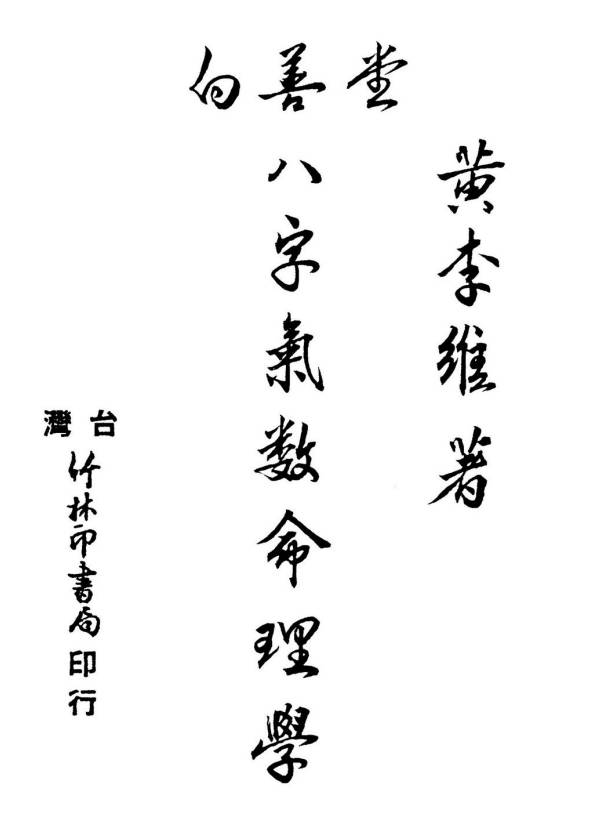 向善堂
黃李維著
八字氣数命理學
台灣
竹林印書局印行